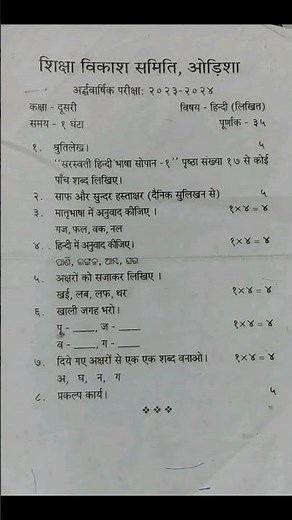 शिक्षा विकाश समिति, ओड़िशा
अर्द्धवार्षिक परीक्षा: २०२३-२०२४
कक्षा - दूसरी विषय - हिन्दी (लिखित)
समय - १ घंटा पूर्णांक - ३५
१. श्रुतिलेख। ५
"सरस्वती हिन्दी भाषा सोपान -१" पृष्ठा संख्या १७ से कोई
पाँच शब्द लिखिए।
२. साफ और सुन्दर हस्ताक्षर (दैनिक सुलिखन से) ५
३. मातृभाषा में अनुवाद कीजिए । १×४ = ४
गज, फल, वक, नल
४. हिन्दी में अनुवाद कीजिए। १×४ = ४
ପାଣି, ଲଙ୍ଗଳ, ଆମ୍ବ, ଘର
५. अक्षरों को सजाकर लिखिए । १×४ = ४
खई, लब, लफ, थर
६. खाली जगह भरो।
पु - ____, ज - ____ १×४ = ४
व - ____, ग - ____
७. दिये गए अक्षरों से एक एक शब्द वनाओ। १×४ = ४
अ, घ, न, ग
८. प्रकल्प कार्य। ५